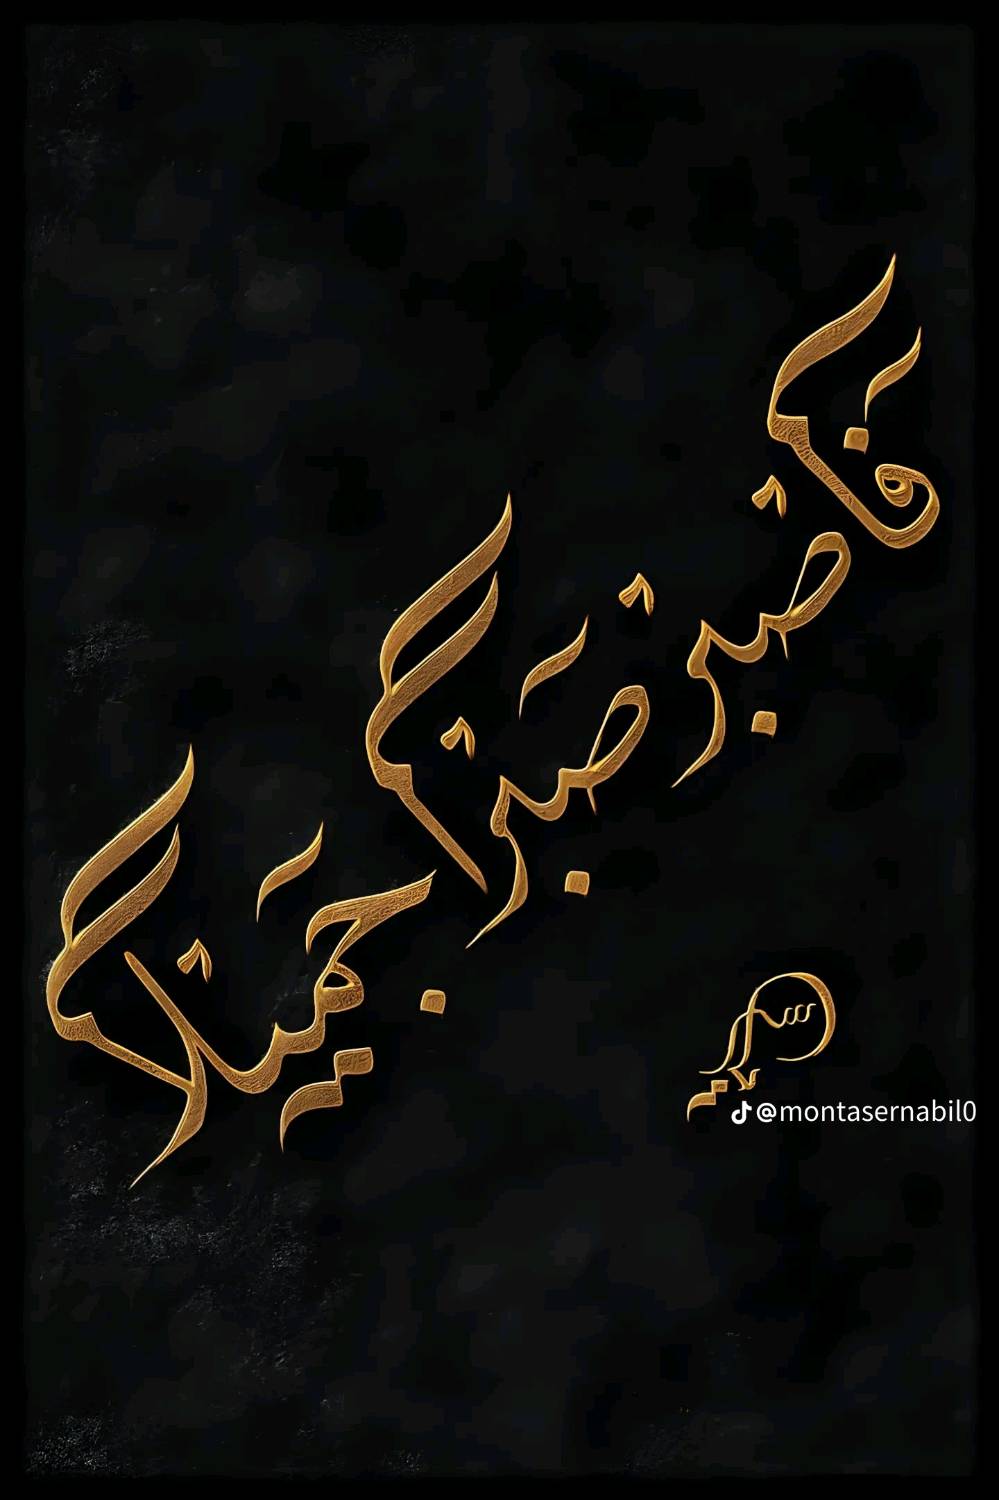 فاصبر صبرا جميلا
@montasernabil0